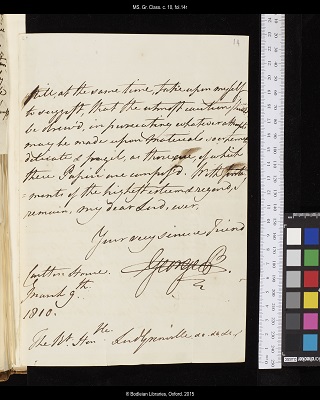 MS. Gr. Class. c. 10, fol. 14r
14
still, at the same time, take upon myself
to suggest, that the utmost caution should
be observ'd, in prosecuting whatever attempts
may be made upon materials so extremely
delicate & fragil, as those are of which
these Papiri are compos'd. With senti-
=ments of the highest esteem & regard, I
remain, my dear Lord, ever,
Your very sincere Friend
George P.
Carlton House.
March 9th.
1810.
The Rt. Honble. Lord Grenville &c &c &c
© Bodleian Libraries, Oxford, 2015